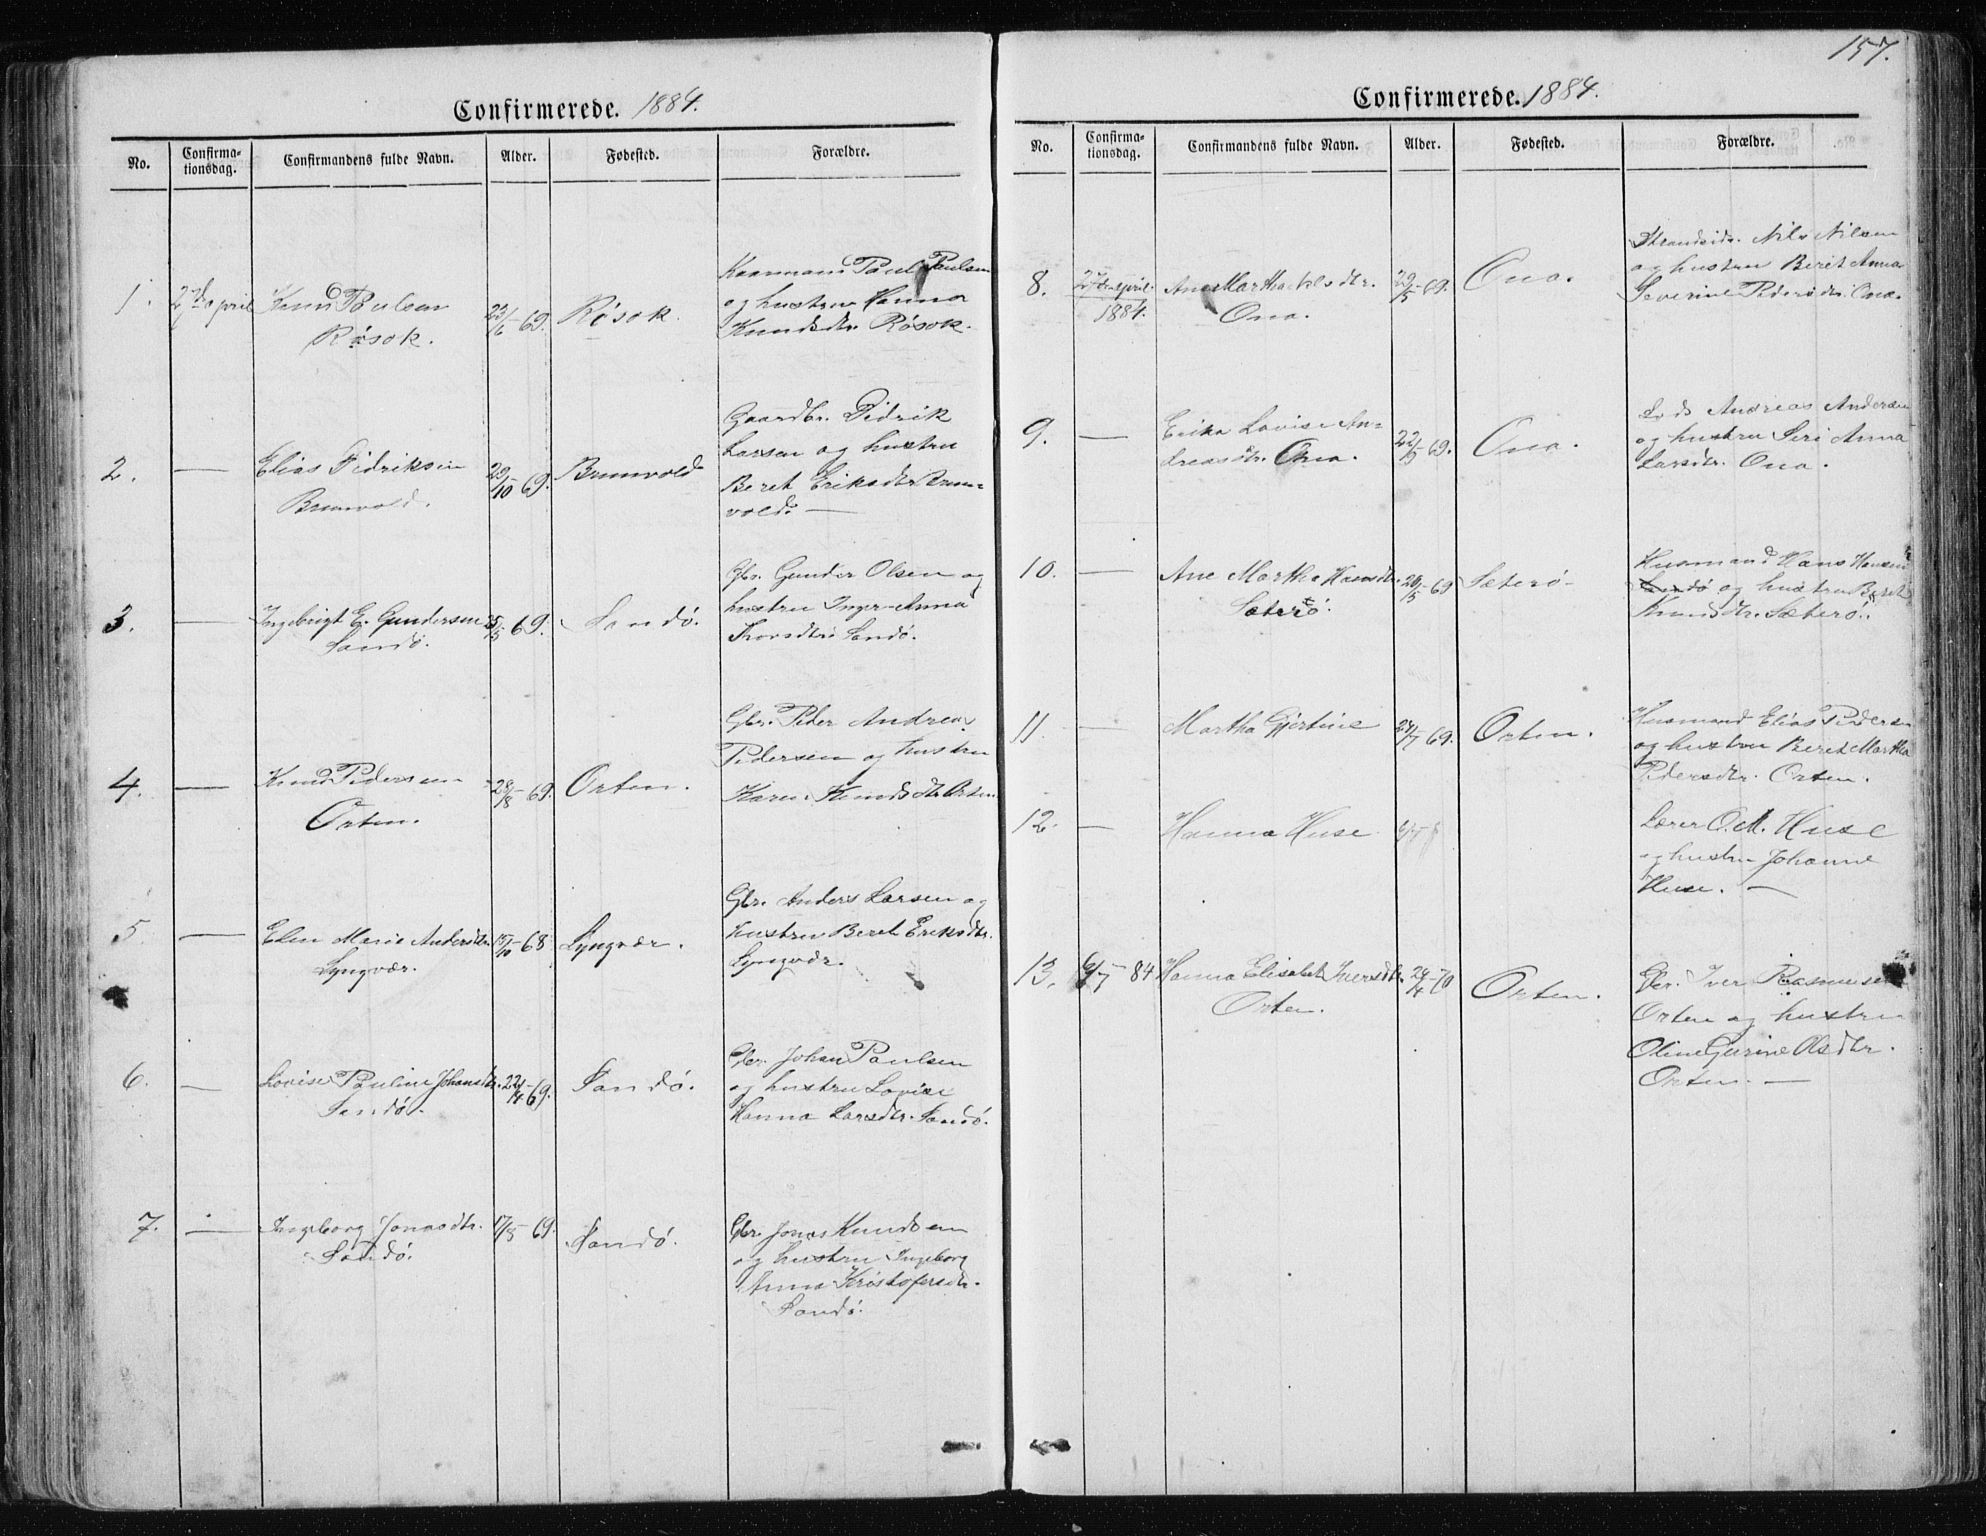 Confirmerede. 1884.
No. Confirmationsdag. Confirmandens fulde Navn. Alder. Fødested. Forældre.
1. 27de april Knud Paulsen 23/6-69. Røsok. Kaarmand Paul Paulsen
Røsok. og hustru Hanna
Knudsdtr. Røsok.
2. — Elias Didriksen 29/10 69. Brunvold Gaardbr. Didrik
Brunvold. Larsen og hustru
Beret Eriksdtr Brun-
vold. —
3. — Ingebrigt E. Gundersen 25/5 69. Sandö. Gbr. Gunder Olsen og
Sandö. hustru Inger-Anna
Sandö.
4. — Knud Pedersen 29/8-69. Orten. Gbr. Peder Andreas
Orten. Pedersen og hustru
Karen Knudsdtr Orten
5 — Elen Marie Andersdtr. 15/10-68 Lyngvær. Gbr. Anders Larsen og
Lyngvær. hustru Beret Eriksdtr.
Lyngvær.
6. — Lovise Pauline Johansdtr. 22/4-69. Sandö. Gbr. Johan Paulsen
Sandö. og hustru Lovise
Hanna Larsdtr. Sandö.
7. — Ingeborg Jonasdtr. 17/8-69. Sandö. Gbr. Jonas Knudsen
Sandö. og hustru Ingeborg
Anna Kristofersdtr.
Sandö.
157.
Confirmerede. 1884.
No. Confirmationsdag. Confirmandens fulde Navn. Alder. Fødested. Forældre.
8. 27de april 1884. Ane Martha Nilsdtr. 29/5-69. Ona. Strandsidr. Nils Nilsen
Ona. og hustru Beret Anna
Severine Pedersdtr. Ona.
9. — Erika Lovise An- 22/5 69. Ona. Andreas Andersen
dreasdtr. Ona. og hustru Seri Anna
Larsdtr. Ona.
10. — Ane Martha Hansdtr. 26/5 69 Sæterö- Husmand Hans Hansen
Sæterö. Sandö og hustru Beret
Knudsdtr. Sæterö.
11. — Martha Gjertine 24/7 69. Orten. Husmand Elias Peders
og hustru Beret Martha
Pedersdtr. Orten.
12. — Hanna Huse Lærer O. M. Huse
og hustru Johanne
Huse. —
13. 6/7 84 Hanna Elisabet Iversdtr. 24/4-70 Orten. Gbr. Iver Rasmusen
Orten. Orten og hustru
Oline Gurine Olsdtr.
Orten. —